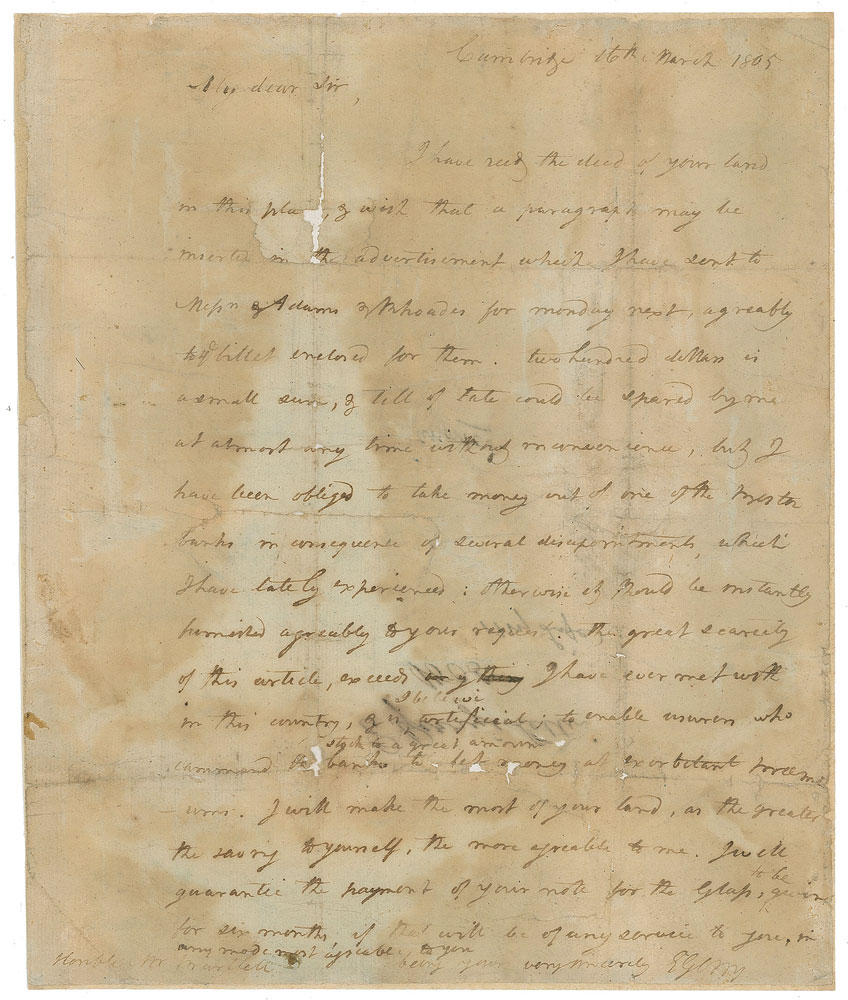 Cambridge 16th March 1805
My dear Sir,
I have recd the deed of your land
in this place, & wish that a paragraph may be
inserted in the advertisement which I have sent to
Messrs Adams & Rhoades for monday next, agreably
to ye billet enclosed for them. two hundred dollars is
a small sum, & till of late could be spared by me
at almost any time without inconvenience, but I
have been obliged to take money out of one of the Boston
banks in consequence of several disapointments, which
I have lately experienced: otherwise it should be instantly
furnished agreably to your request. the great scarcity
of this article, exceeds any thing I have ever met with
I believe
in this country, & is artificial; to enable usurers who
stock to a great amount
command the banks to let money at exorbitant premi
ums. I will make the most of your land, as the greater
the saving to yourself, the more agreable to me. I will
to be
guarantie the payment of your note for the Glass, given
for six months, if that will be of any service to you, in
any mode most agreable to you
Honble Mr Bartlett being your very sincerely EGerry